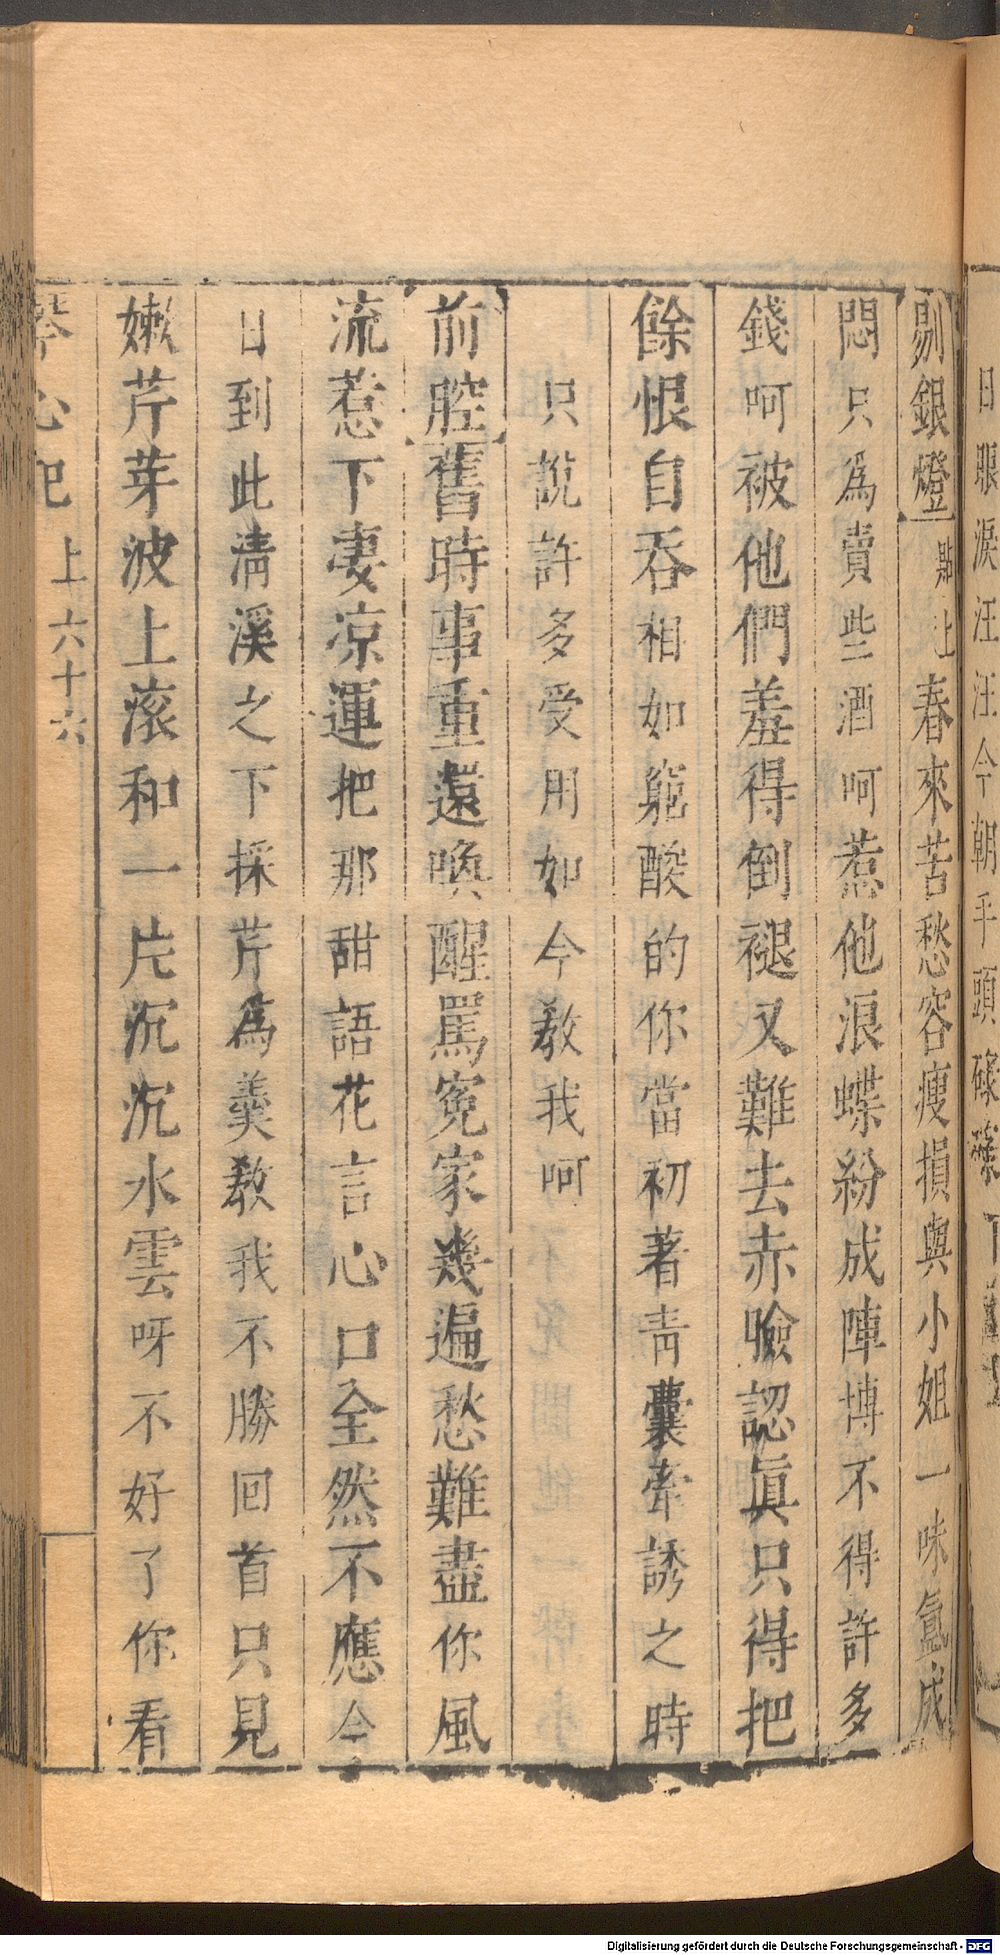 日眼淚汪汪今朝乎頭
剔銀燈點上春來苦愁容瘦損與小姐一味氳成
悶只爲賣些酒呵惹他浪蝶紛成陣博不得許多
錢呵被他們羞得倒褪又難去赤臉認眞只得把
餘恨自吞相如窮酸的你當初著靑囊牽誘之時
只說許多受用如今敎我呵
前腔舊時事重還喚醒罵寃家幾遍愁難盡你風
流惹下妻凉運把那甜語花言心口全然不應今
日到此淸溪之下採芹爲羹敎我不勝回首只見
嫩芹芽波上滚和一片沉沉水雲呀不好了你看
琴心記 上 六十六
Digitalisierung gefördert durch die Deutsche Forschungsgemeinschaft - DFG